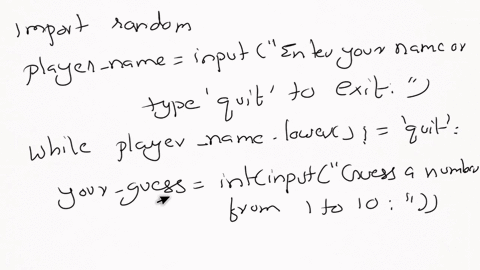 import random
player_name = input ("Enter your name or
type 'quit' to exit: ")
while player_name.lower() != 'quit':
your_guess = int(input("Guess a number
from 1 to 10 : "))